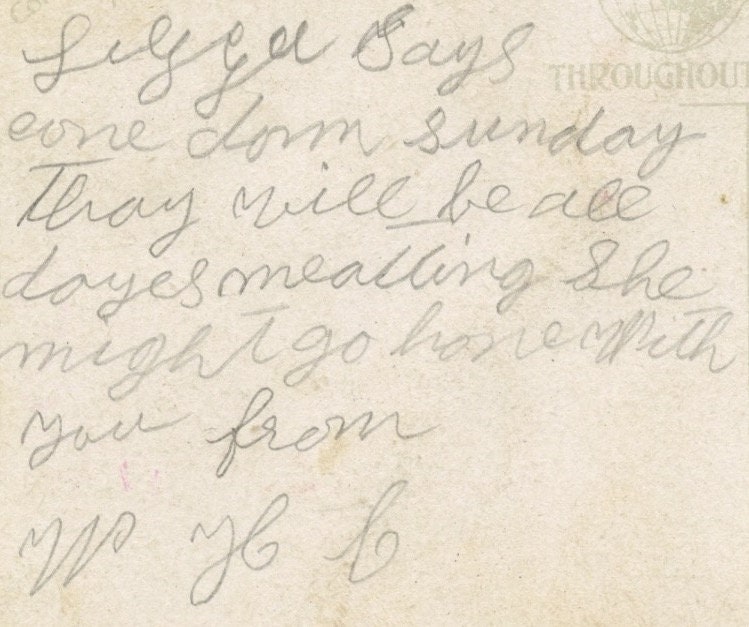 THROUGHOUT
Says
cone dorn sunday
Thay will be all
dayes meatting She
might go hone With
you from
W H C